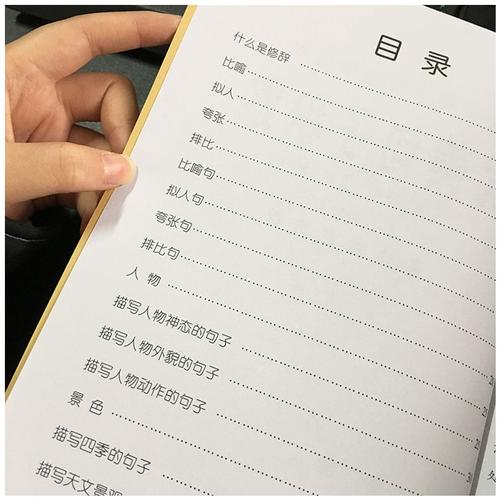 目录
什么是修辞
比喻
拟人
夸张
排比
比喻句
拟人句
夸张句
排比句
人物
描写人物神态的句子
描写人物外貌的句子
描写人物动作的句子
景色
描写四季的句子
描写天文景观